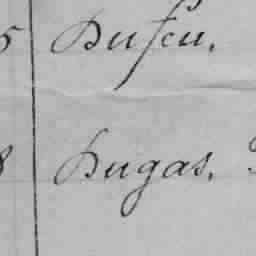 5 Dufcu.
8 Dugas.